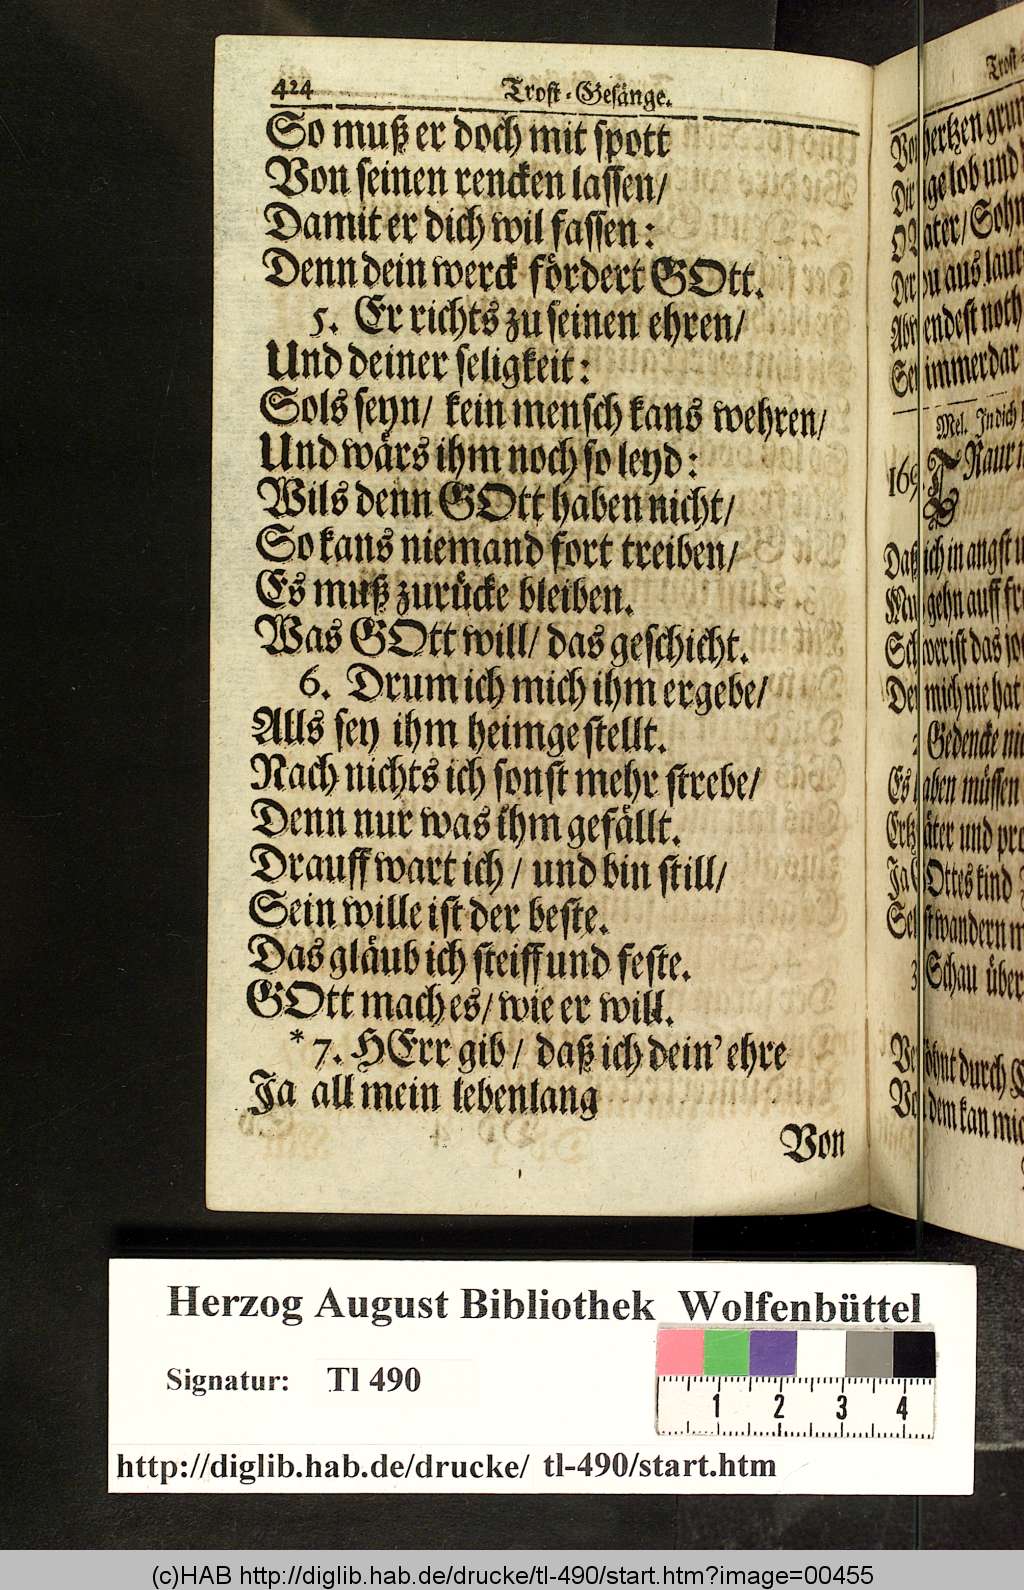 424 Trost-Gesänge.
So muß er doch mit spott
Von seinen rencken lassen/
Damit er dich wil fassen:
Denn dein werck fördert GOtt.
5. Er richts zu seinen ehren/
Und deiner seligkeit:
Sols seyn/ kein mensch kans wehren/
Und wärs ihm noch so leyd:
Wils denn GOtt haben nicht/
So kans niemand fort treiben/
Es muß zurücke bleiben.
Was GOtt will/ das geschicht.
6. Drum ich mich ihm ergebe/
Alls sey ihm heimgestellt.
Nach nichts ich sonst mehr strebe/
Denn nur was ihm gefällt.
Drauff wart ich/ und bin still/
Sein wille ist der beste.
Das gläub ich steiff und feste.
GOtt mach es/ wie er will.
* 7. HErr gib/ daß ich dein' ehre
Ja all mein lebenlang
Von
hertzen
lob und
Vater/ Sohn
aus
noth
immerdar
Mel. In dich
Daß ich in angst
gehn auff
ist das
mich nie hat
Gedencke
müssen
und
GOttes kind
wandern
3 Schau über
durch
dem kan
Herzog August Bibliothek Wolfenbüttel
Signatur: Tl 490
1 2 3 4
http://diglib.hab.de/drucke/ tl-490/start.htm
(c)HAB http://diglib.hab.de/drucke/tl-490/start.htm?image=00455